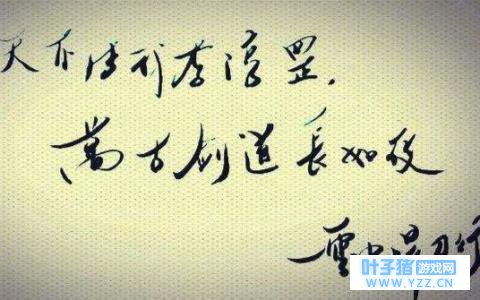 天不我李淳罡,
萬古剑道長如夜
雪中悍刀行
叶子猪游戏网
WWW.YZZ.CN